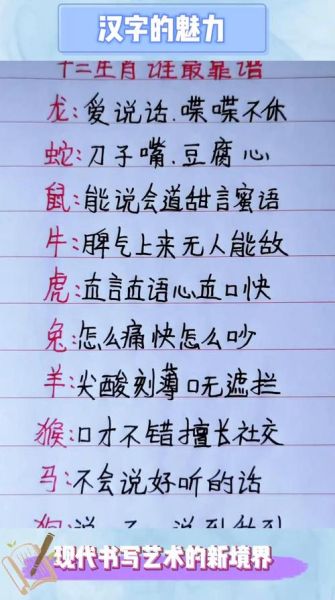 汉字的魅力
十二生肖谁最靠谱
龙:爱说话.喋喋不休
蛇:刀子嘴.豆腐心
鼠:能说会道甜言蜜语
牛:脾气上来无人能敌
虎:直言直语心直口快
兔:怎么痛快怎么吵
羊:尖酸刻薄口无遮拦
猴:口才不错擅长社交
马:不会说好听的话
狗:说
现代书写艺术的新境界